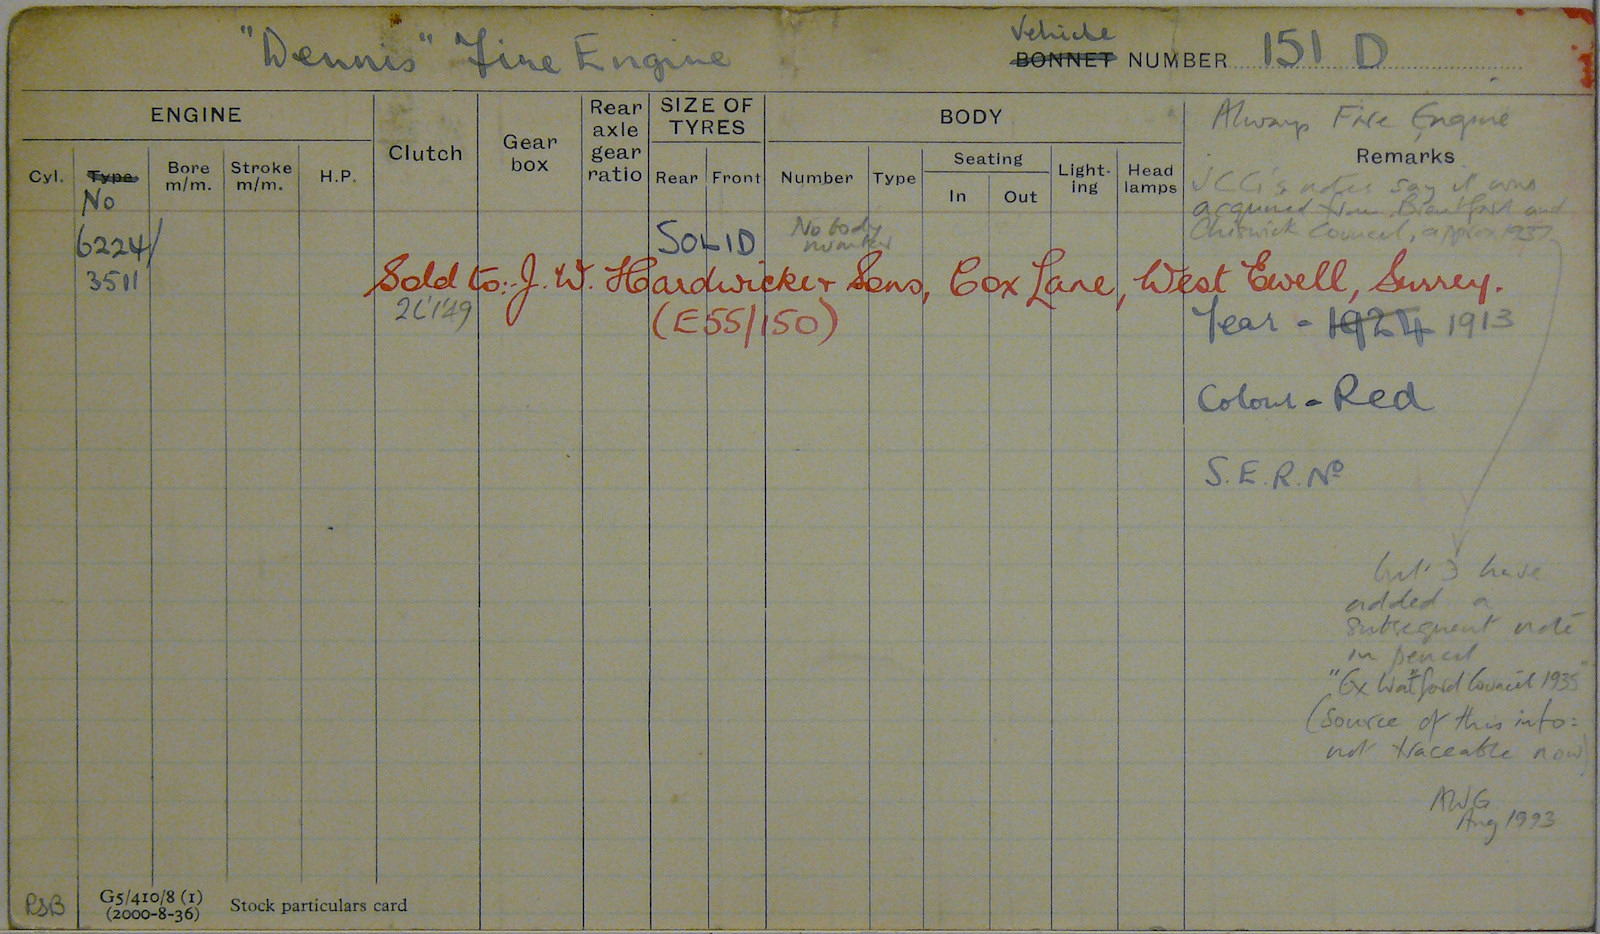 "Dennis" Fire Engine
Vehicle
BONNET NUMBER 151 D
ENGINE
Clutch
Gear box
Rear axle gear ratio
SIZE OF TYRES
BODY
Always Fire Engine
Remarks
Cyl.
Type
No
Bore m/m.
Stroke m/m.
H.P.
Rear
Front
Number
Type
Seating
In
Out
Light-ing
Head lamps
JCG's notes say it was
acquired from Brentford and
Chiswick Council, approx 1937
6224/
3511
SOLID
No body
number
Sold to:- J. W. Hardwicke & Sons, Cox Lane, West Ewell, Surrey.
(E55/150)
Year - 1924 1913
Colour - Red
S.E.R. No
but I have
added a
subsequent note
in pencil
"Ex Watford Council 1935"
(source of this info:
not traceable now)
AWG
Aug 1993
PSB
G5/410/8 (1)
(2000-8-36)
Stock particulars card